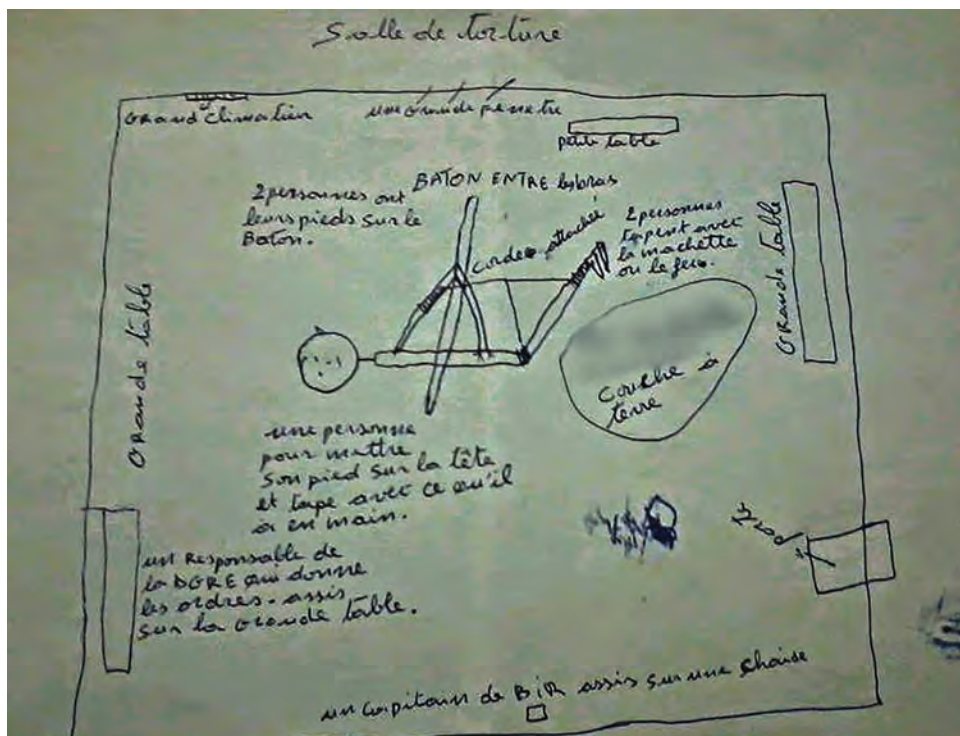 Salle de torture
GRand climatien
une Grande penetre
petite table
BATON ENTRE les bras
2 personnes ont
leurs pieds sur le
Baton.
cordes attachée
2 personnes
tapent avec
la machette
ou le fer.
GRande table
GRande table
couche à
terre
une personne
pour mettre
son pied sur la tête
et tape avec ce qu'il
a en main.
porte
un Responsable de
la DGRE qui donne
les ordres. assis
sur la Grande table.
un capitain de BiR assis sur une chaise